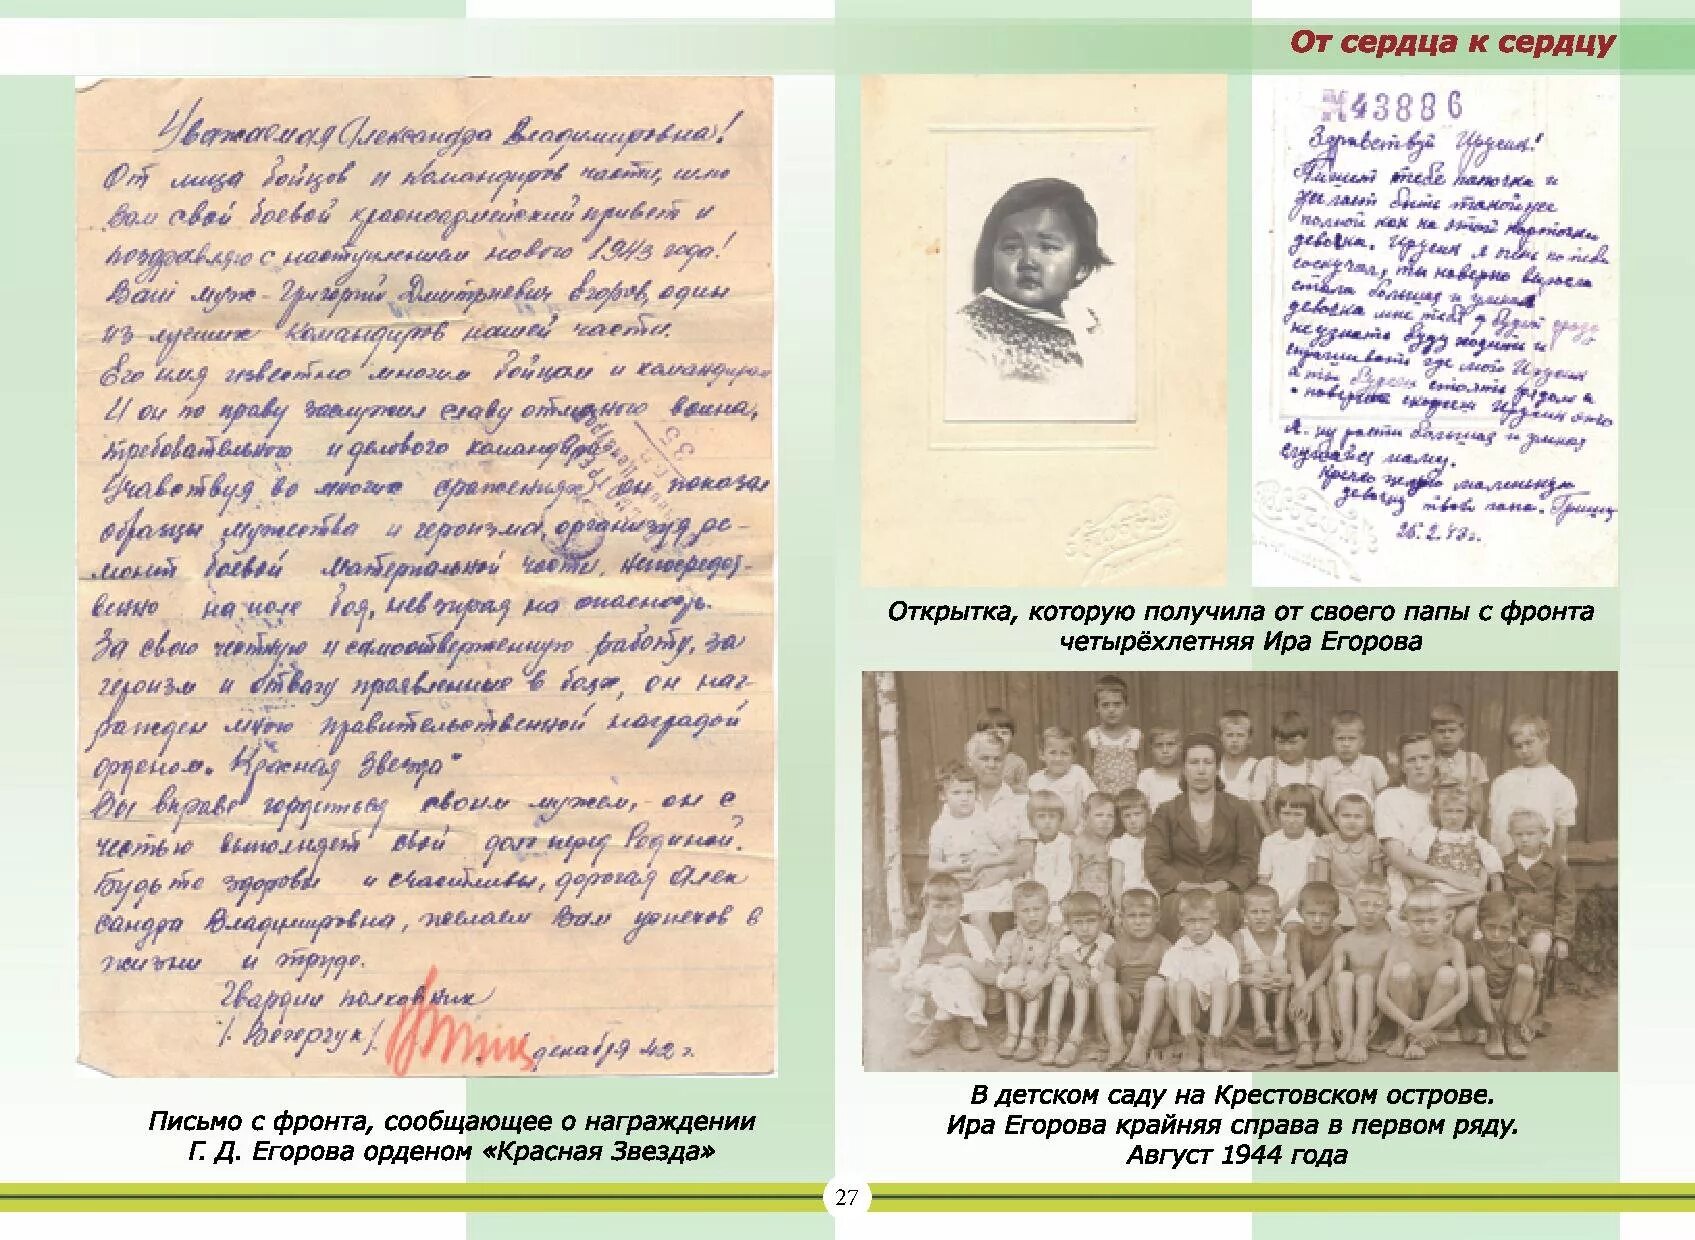 От сердца к сердцу
Уважаемая Александра Владимировна!
От лица бойцов и командиров части, шлю
Вам свой боевой красноармейский привет и
поздравляю с наступлением нового 1943 года!
Ваш муж - Григорий Дмитриевич Егоров, один
из лучших командиров нашей части.
Его имя известно многим бойцам и командирам
И он по праву заслужил славу отличного воина,
требовательного и делового командира.
Учавствуя во многих сражениях он показал
образцы мужества и героизма, организуя ре-
монт боевой материальной части, непосредст-
венно на поле боя, невзирая на опасность.
За свою честную и самоотверженную работу, за
героизм и отвагу проявленные в боях, он наг-
ражден мною правительственной наградой
орденом. Красная Звезда"
Вы вправе гордиться своим мужем, - он с
честью выполняет свой долг перед Родиной.
Будьте здоровы и счастливы, дорогая Алек
сандра Владимировна, желаем Вам успехов в
жизни и труде.
Гвардии полковник
декабря 42 г.
Письмо с фронта, сообщающее о награждении
Г. Д. Егорова орденом «Красная Звезда»
43886
Здравствуй Ирусик!
Пишет тебе папочка и
желает быть такой же
полной как на этой карточке
девочка. Ирусик я очень по тебе
соскучал, ты наверно выросла
стала большая и умная
девочка мне тебя
не узнать буду ходить и
спрашивать где мой Ирусик
а ты будешь стоять рядом и
наверное скажешь Ирусик
А. ну расти большая и умная
слушайся маму.
Крепко целую маленькую
девочку твой папа. Гриша
26.2.43г.
Открытка, которую получила от своего папы с фронта
четырёхлетняя Ира Егорова
В детском саду на Крестовском острове.
Ира Егорова крайняя справа в первом ряду.
Август 1944 года
27